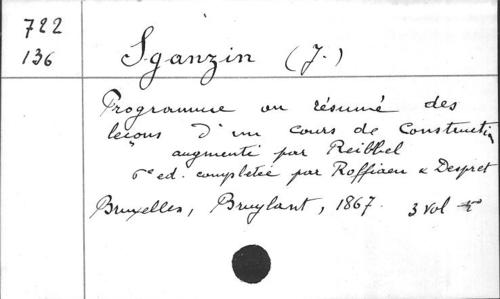 722
136
Sganzin (J.)
Programme ou résumé des
leçons d'un cours de Constructi
augmenté par Reibbel
6e ed. completée par Roffiaen & Despret
Bruxelles, Bruylant, 1867. 3 vol